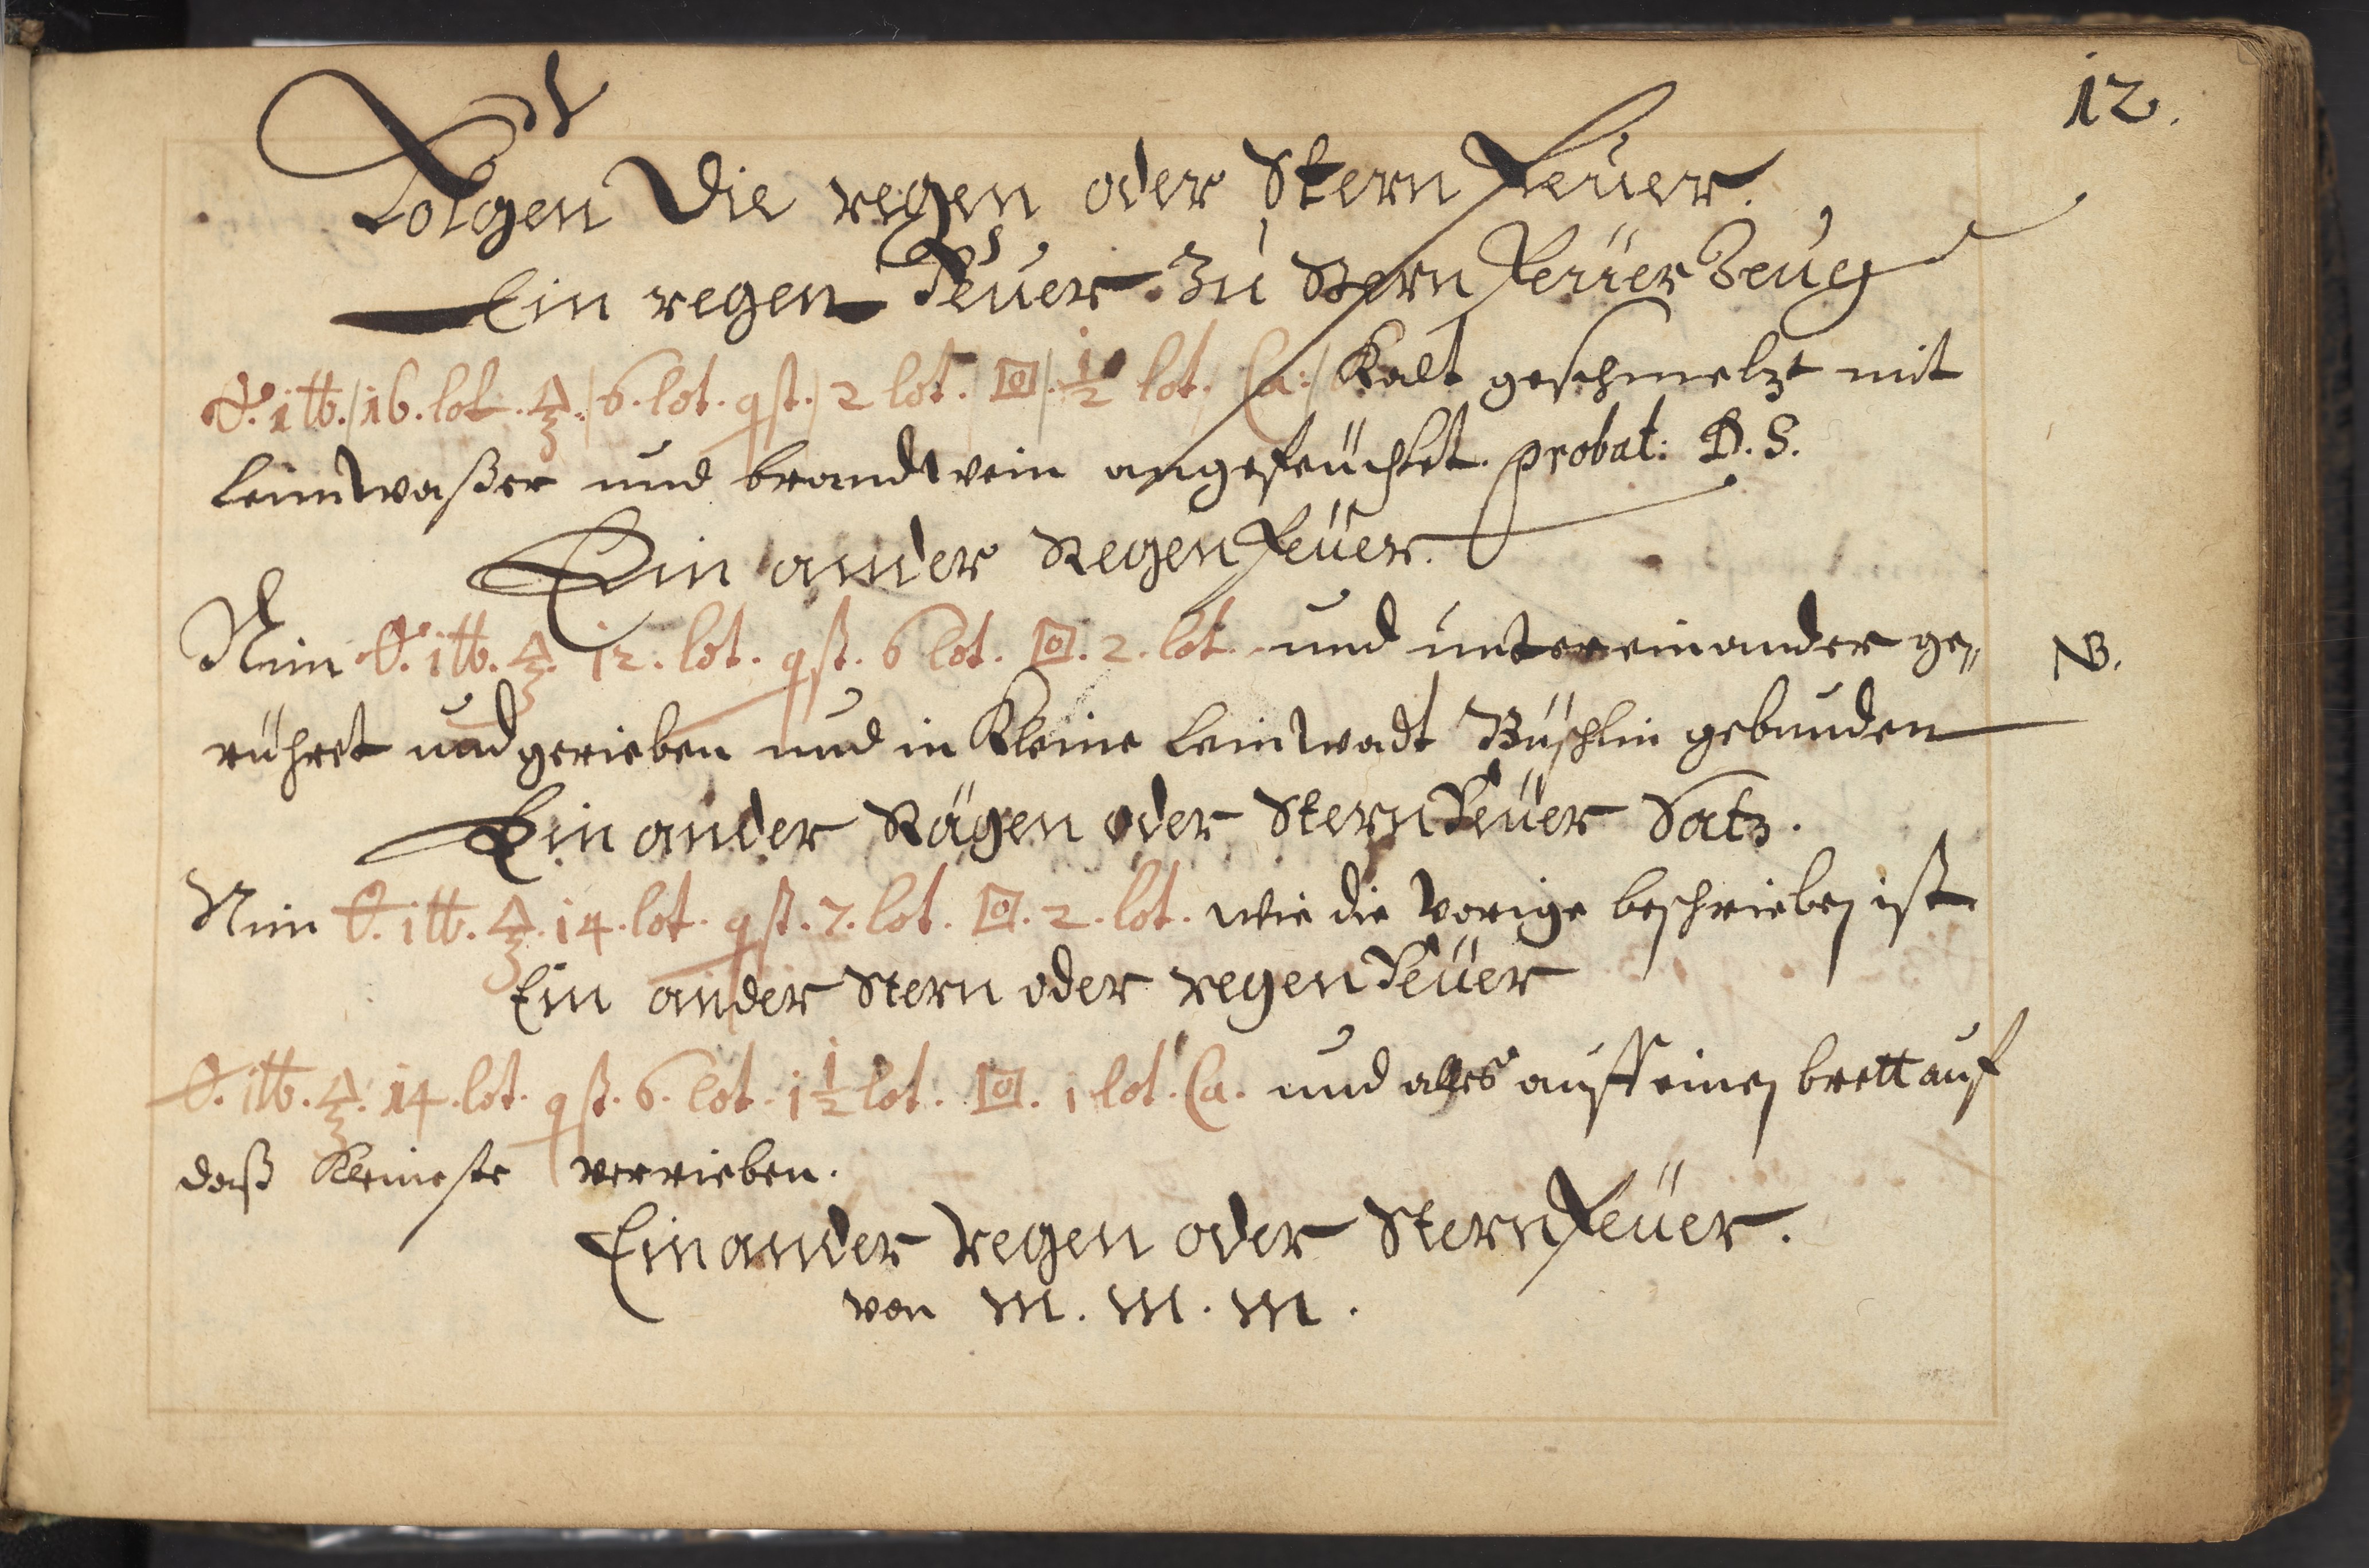 12.
Folgen Die regen oder Stern Feüer.
Ein regen Feüer. Zu Stern Feüer Zeug
1 ℔. / 16. lot. 🜍. / 6. lot. qst. / 2 lot. / ⊡ / ½ lot. / Ca: / Kalt geschmeltzt mit
leimwaßer und brandtwein angefeüchtet. probat: D. S.
Ein ander Regen Feüer.
Nim 1 ℔. 🜍. 12. lot. qst. 6 lot. ⊡. 2. lot. und untereinander ge„
NB.
rühret und gerieben und in Kleine leinwadt Büschlin gebunden
Ein ander Rägen oder Stern Feüer Satz.
Nim 1 ℔. 🜍. 14. lot. qst. 7. lot. ⊡. 2. lot. wie die Vorige beschrieben ist
Ein ander Stern oder regen Feüer
1 ℔. 🜍. 14. lot. qst. 6. lot. 1 ½ lot. ⊡. 1 lot. Ca. und alles auff einen brett auf
daß Kleineste verrieben.
Ein ander regen oder Stern Feüer.
von M. M. M.